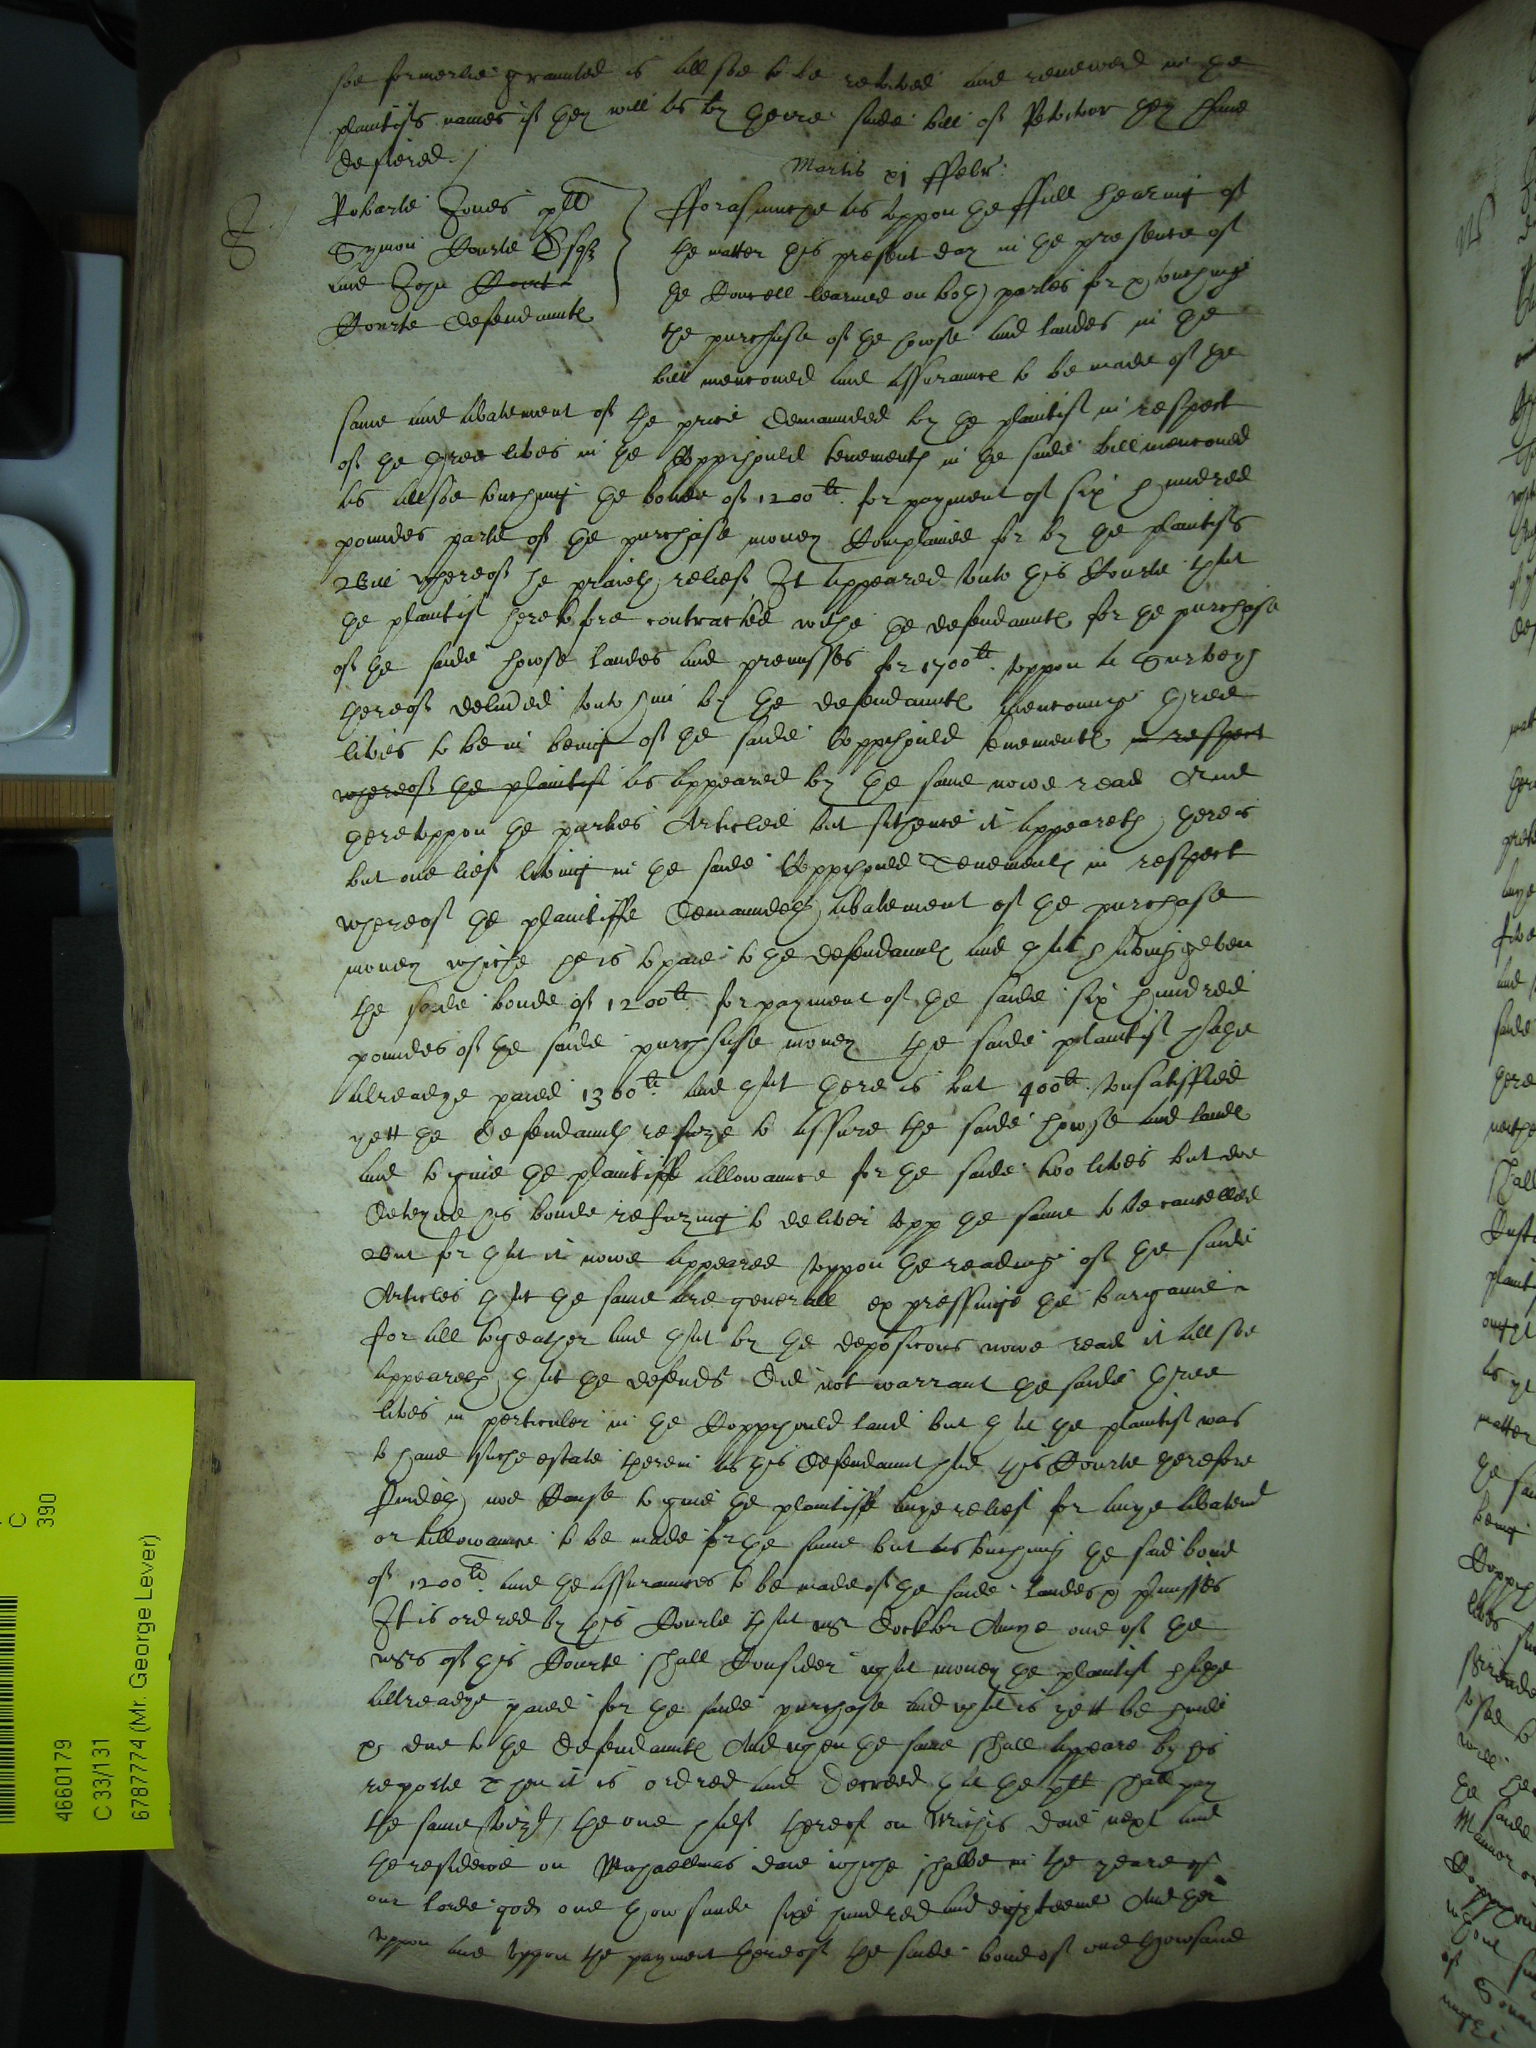 soe formerlie graunted is allsoe to be revived and renewed in the
plaintifs names if they will as by theire saide bill of Revivor they have
desiered /
Martis xj ffebr:
Robarte Jones plt
Symon Courte Esqr
and John Court
Courte defendauntes
fforasmuche as uppon the full hearing of
the matter this present day in the presence of
the Councell learned on both partes for & touchinge
the purchase of the howse and landes in the
bill mencioned and assuraunce to be made of the
same and abatement of the price demaunded by the plaintif in respect
of the three lives in the Coppihould tenementes in the saide bill mencioned
as allsoe touching the bonde of 1200li. for payment of six hundred
poundes parte of the purchase money Complained for by the plaintifs
Bill whereof he praieth relief It appeared unto this Courte that
the plaintif heretofore contracted withe the defendauntes for the purchase
of the saide howse landes and premisses for 1700li. uppon a Survey
thereof delivered unto him by the defendauntes mencioninge three
lives to be in being of the saide Coppihould tenementes in respect
whereof the plaintif as appeared by the same nowe read And
thereuppon the parties Articled but sithence it appeareth there is
but one lief living in the saide Coppihould Tenementes in respect
whereof the plaintiffe demaundeth abatement of the purchase
money whiche he is to paie to the defendauntes and that having geven
the saide bonde of 1200li. for payment of the saide six hundred
poundes of the saide purchase money the saide plaintif hathe
alreadye paied 1300li. and that there is but 400li. unsatisfied
yett the defendauntes refuze to assure the saide howse and landes
and to give the plaintiff allowaunce for the saide two lives but doe
deteyne his bonde refuzing to deliver upp the same to be cancelled
But for that it nowe appeared uppon the reading of the saide
Articles that the same are generall expressinge the bargaine
for all togeather and that by the deposicons nowe read it allsoe
appeareth that the defendts did not warrant the saide three
lives in perticuler in the Coppihould land but that the plaintif was
to have suche estate therein as this defendaunt had this Courte therefore
findeth noe Cause to give the plaintiff anye relief for anye abatemt
or allowaunce to be made for the same but as touching the said bond
of 1200li. and the assuraunces to be made of the saide landes & premisses
It is ordred by this Courte that mr Docktor Amye one of the
mrs of this Courte shall Consider what money the plaintif hathe
allreadye paied for the saide purchase and what is yett behinde
& due to the defendauntes And when the same shall appeare by his
reporte Then it is ordred and decreed that the plt shall pay
the same vizt, the one half thereof on Michis daie next and
the residewe on Michaellmas daie whiche shalbe in the yeare of
our lorde god one thowsande sixe hundred and eighteene And ther
uppon and uppon the payment thereof the saide bond of one thowsand
4660179
C 33/131
6787774 (Mr. George Lever)
C
390